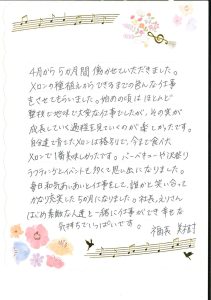 4月から5カ月間働かせていただきました。
メロンの種植えからできるまでの色んな仕事
をさせてもらいました。始めの頃はほとんど
堅枝と地味で大変な仕事でしたが、その実が
成長していく過程を見ていくのが楽しかったです。
自分達で育てたメロンは格別で、今まで食べた
メロンで1番美味しかったです。バーベキューや沢登り
ラフティングとイベントも多くて思い出になりました。
毎日和気あいあいと仕事をして、誰かと笑い合って
かなり充実した5カ月になりました。社長、えりさん
はじめ素敵な人達と一緒に仕事ができ幸せな
気持ちでいっぱいです。